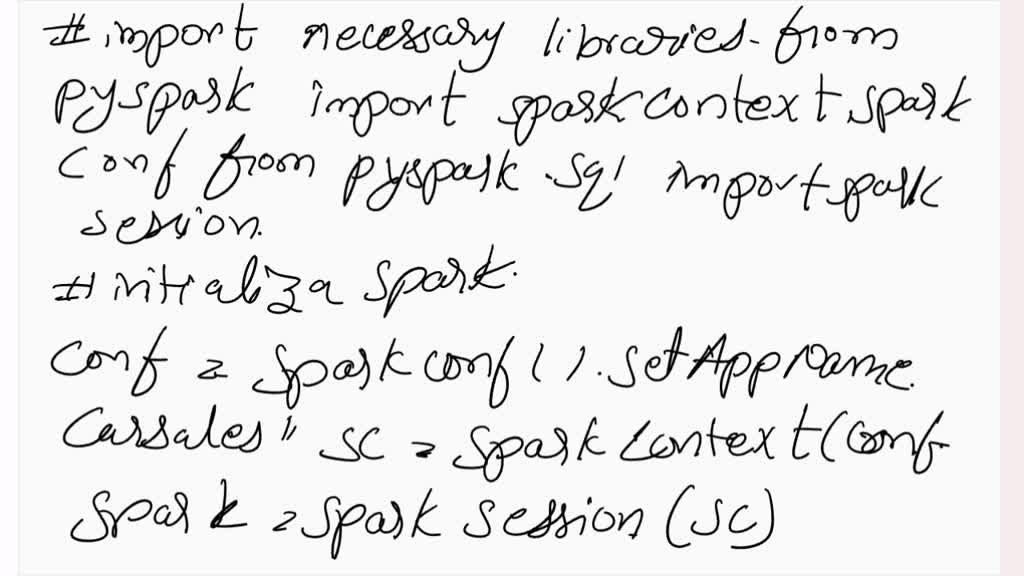 # import necessary libraries. from
pyspark import sparkcontext, spark
conf from pyspark .sql import spark
session.
# initializa spark.
conf = sparkconf().setAppName
Carsales" sc = spark context(conf
spark = spark session (sc)